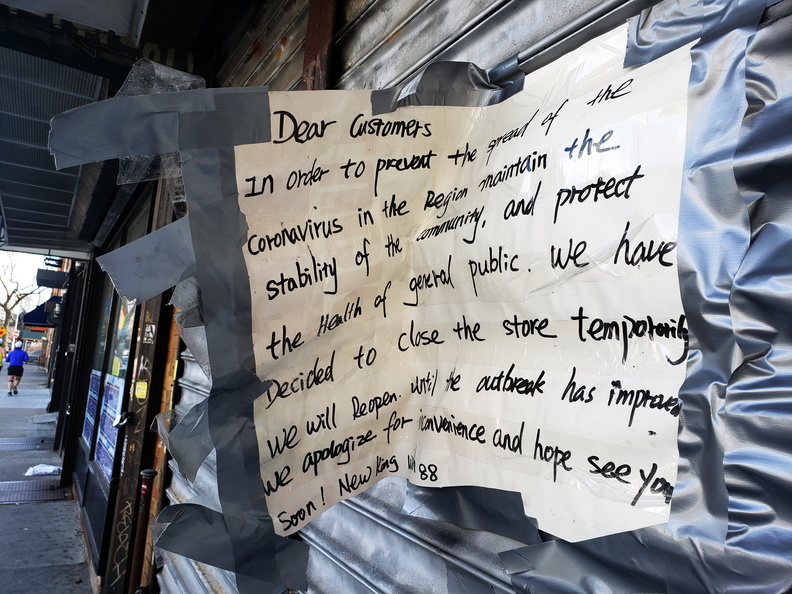 Dear Customers
In order to prevent the spread of the
coronavirus in the Region maintain the
stability of the community, and protect
the Health of general public. We have
Decided to close the store temporarily
We will Reopen. until the outbreak has improved
We apologize for inconvenience and hope see you
Soon! New King 88